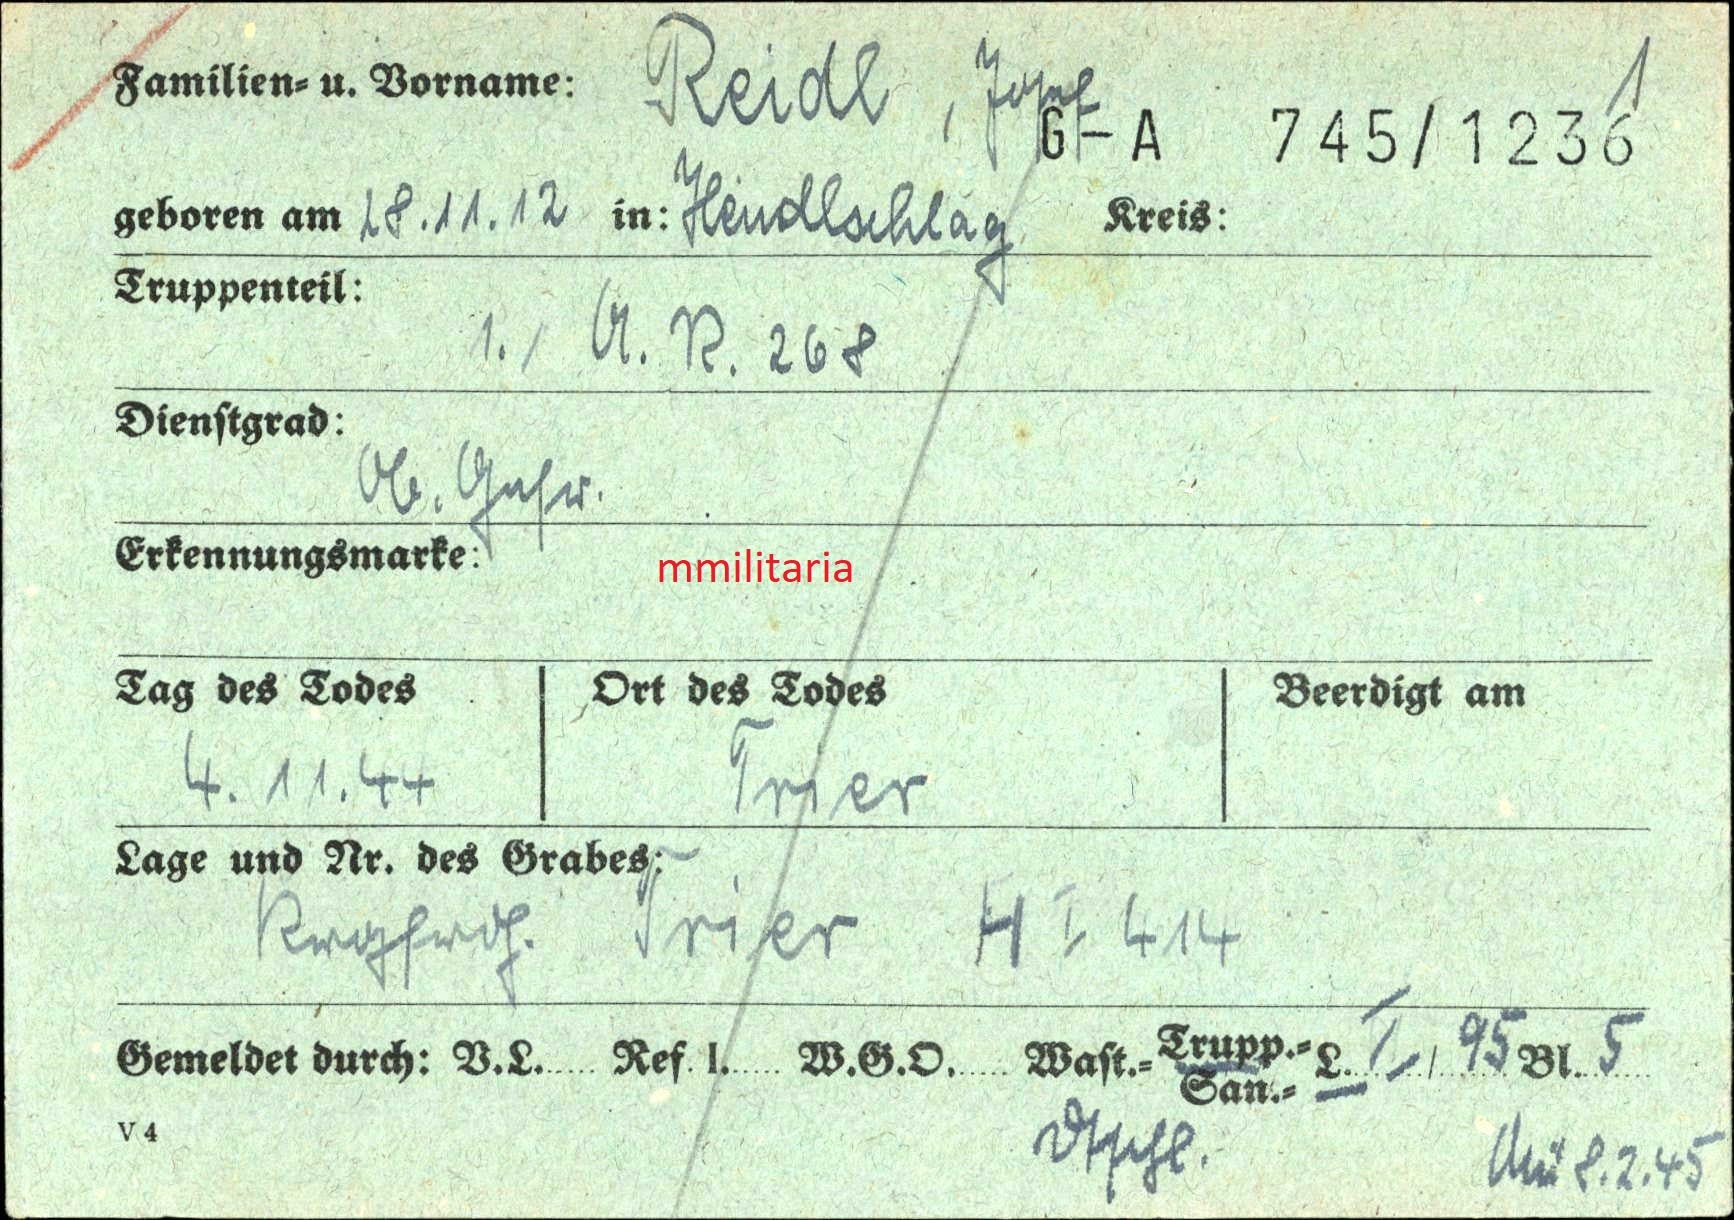 1
Familien- u. Vorname: Reidl, Josef
G-A 745/1236
geboren am 28.11.12 in: Hendlschlag Kreis:
Truppenteil:
1./ A. R. 268
Dienstgrad:
Ob. Gefr.
Erkennungsmarke:
mmilitaria
Tag des Todes Ort des Todes Beerdigt am
4. 11. 44 Trier
Lage und Nr. des Grabes:
Trier H I 414
Gemeldet durch: V.L...... Ref. 1...... W.G.O...... Wast.- Trupp.- San.- L. I / 95 Bl. 5
V 4
8.2.45